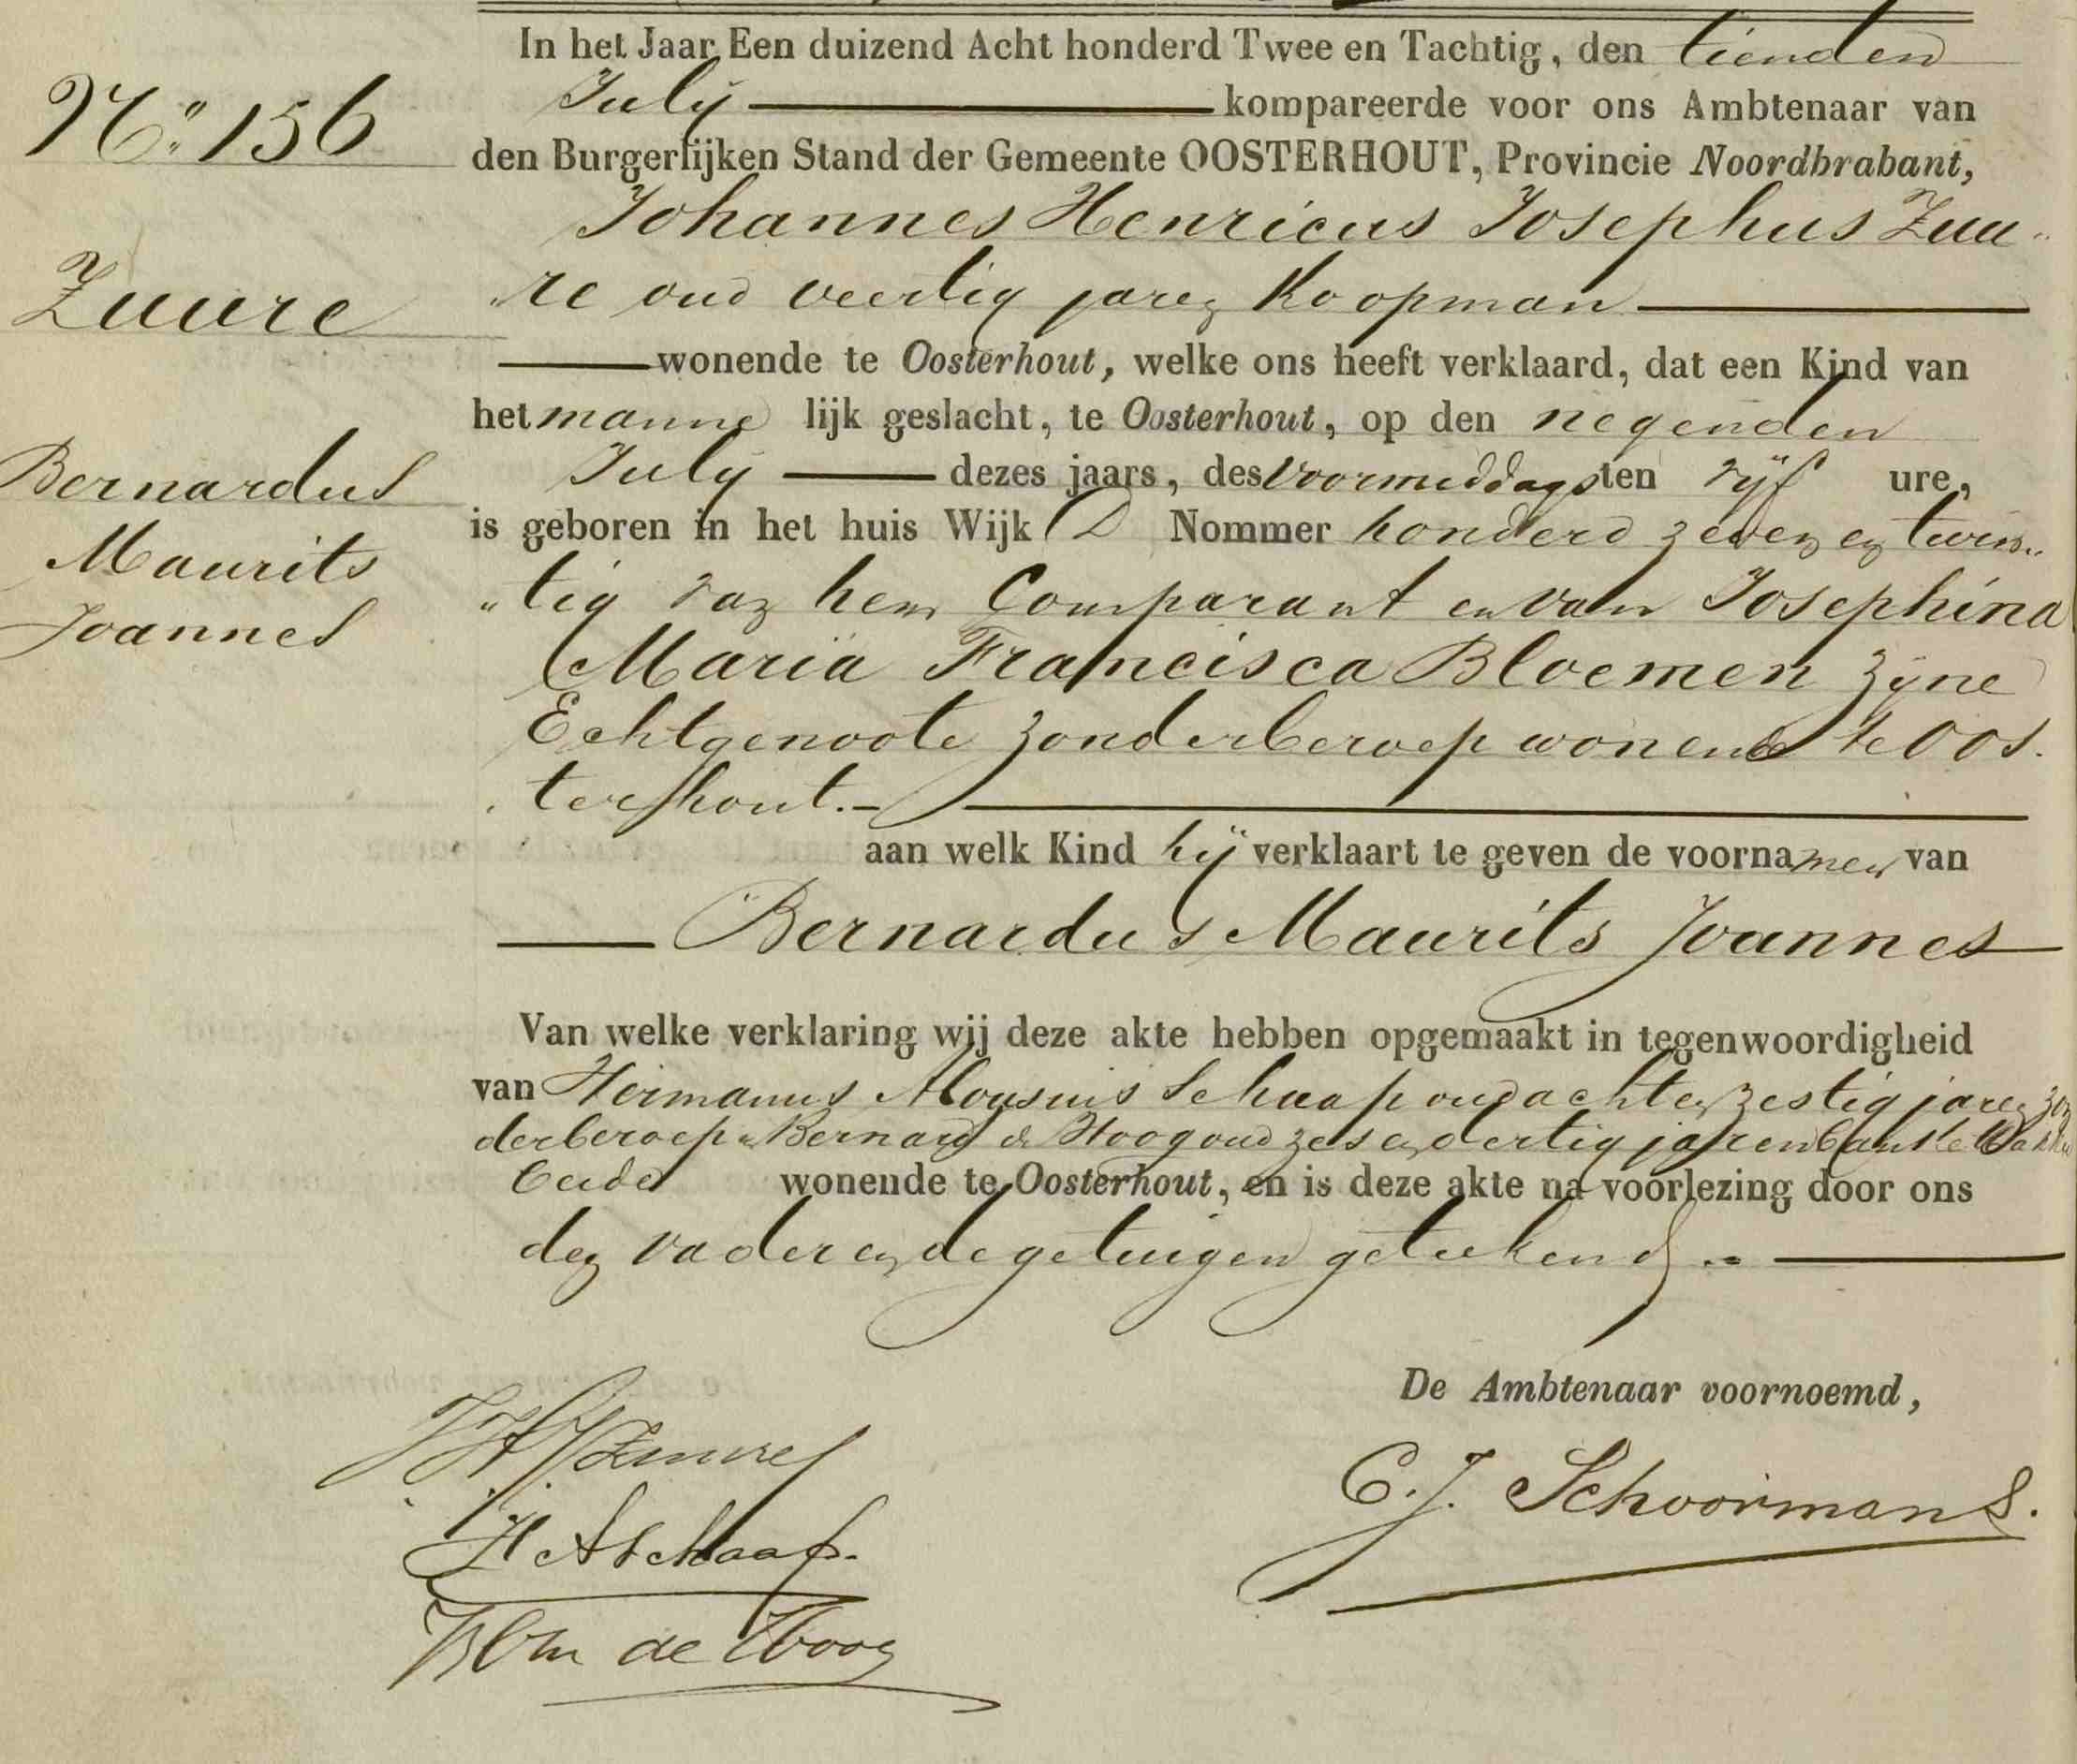 In het Jaar Een duizend Acht honderd Twee en Tachtig, den tienden
No. 156
July kompareerde voor ons Ambtenaar van
den Burgerlijken Stand der Gemeente OOSTERHOUT, Provincie Noordbrabant,
Johannes Henricus Josephus Zuu„
Zuure
„re oud veertig jaren Koopman
wonende te Oosterhout, welke ons heeft verklaard, dat een Kind van
het manne lijk geslacht, te Oosterhout, op den negenden
Bernardus
Maurits
Joannes
July dezes jaars, des voormiddags ten vijf ure,
is geboren in het huis Wijk D Nommer honderd zeven en twin„
„tig van hem Comparant en van Josephina
Maria Francisca Bloemen zijne
Echtgenoote zonder beroep wonende te Oos
terhout.
aan welk Kind hij verklaart te geven de voornamen van
Bernardus Maurits Joannes
Van welke verklaring wij deze akte hebben opgemaakt in tegenwoordigheid
van Hermanus Aloysius Schaap oud acht en zestig jaren zon
der beroep en Bernard de Hoog oud zes en dertig jaren
beide wonende te Oosterhout, en is deze akte na voorlezing door ons
den vader en de getuigen geteekend.
De Ambtenaar voornoemd,
JHJ Zuure
C. J. Schoormans.
H A Schaap.
de Hoog